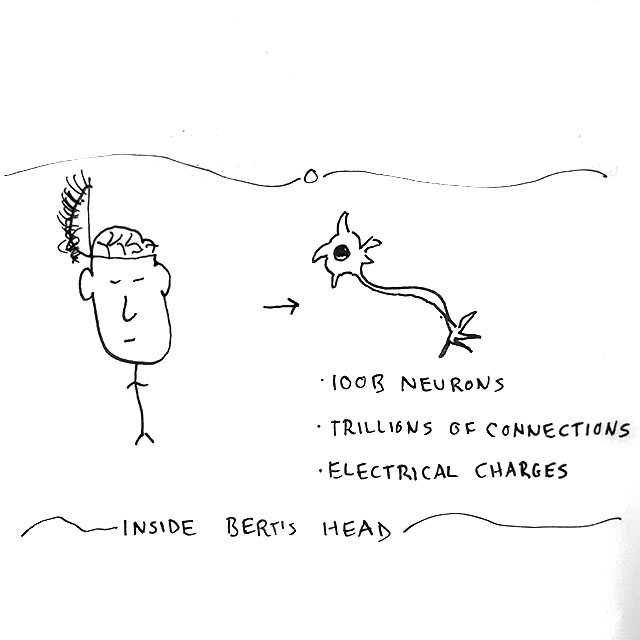 · 100B NEURONS
· TRILLIONS OF CONNECTIONS
· ELECTRICAL CHARGES
INSIDE BERT'S HEAD